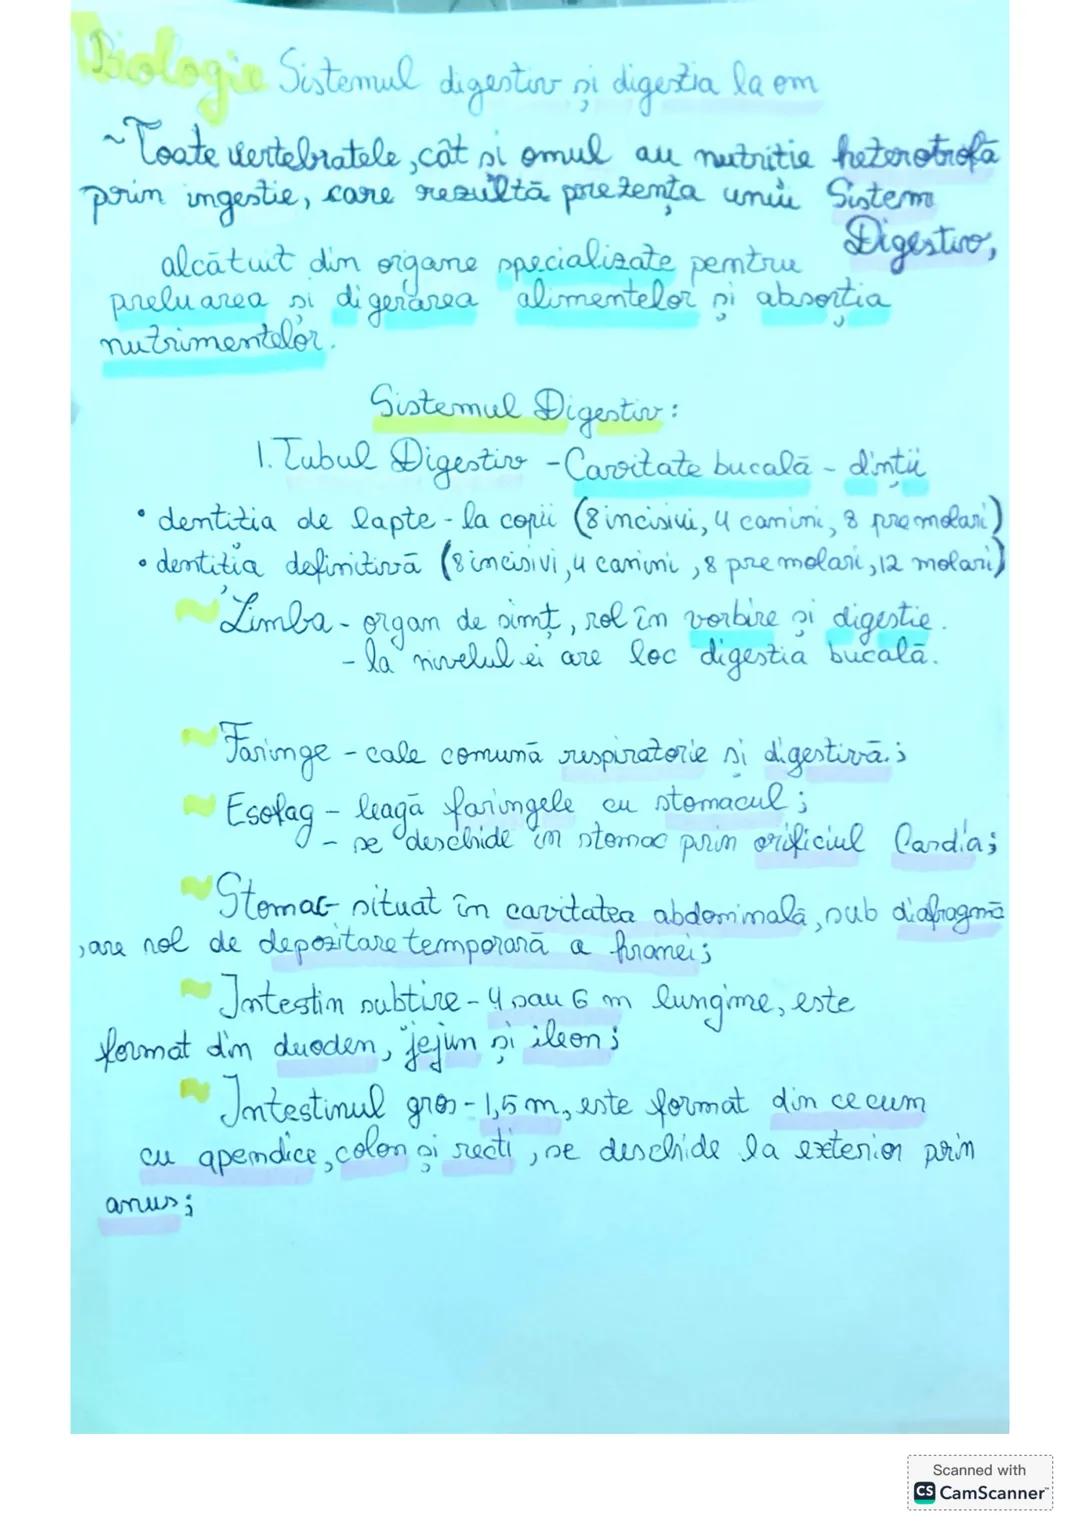 Biologie Sistemul digestiv și digestia la om
~Toate vertebratele, cât și omul au nutriție heterotrofă
prin ingestie, care rezultă prezența unui Sistem
Digestiv,
alcătuit din organe specializate pentru
preluarea și digerarea alimentelor și absorția
nutrimentelor.
Sistemul Digestiv:
1. Tubul Digestiv - Cavitate bucală - dinții
• dentiția de lapte - la copii (8 incisivi, 4 canini, 8 premolari)
• dentiția definitivă (8 incisivi, 4 canini, 8 premolari, 12 molari)
~ Limba - organ de simț, rol în vorbire și digestie.
- la nivelul ei are loc digestia bucală.
~ Faringe - cale comună respiratorie și digestivă.;
~ Esofag - leagă faringele cu stomacul;
- se deschide în stomac prin orificiul Cardia;
~ Stomac - situat în cavitatea abdominală, sub diafragmă
, are rol de depozitare temporară a hranei;
~ Intestin subtire - 4 sau 6 m lungime, este
format din duoden, jejun și ileon;
~ Intestinul gros - 1,5 m, este format din cecum
cu apendice, colon și rect, se deschide la exterior prin
anus;
Scanned with
CS CamScanner